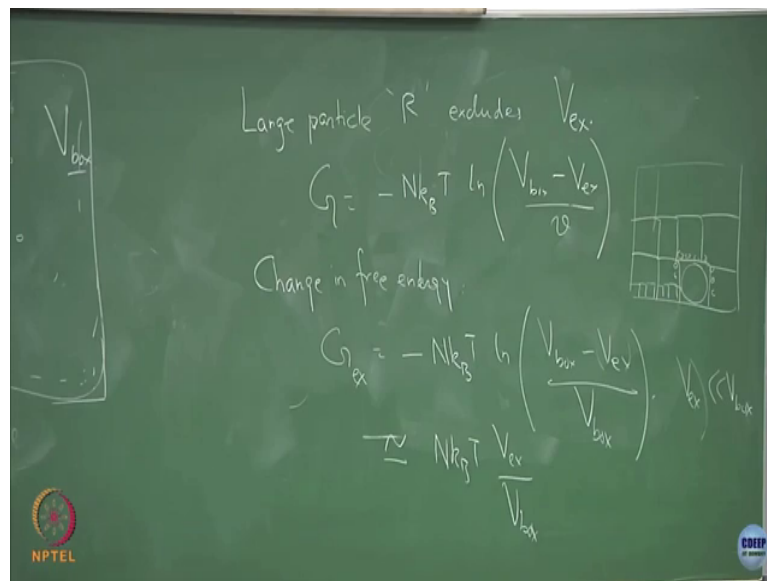 V_box
Large particle 'R' excludes V_ex.
G = - Nk_BT ln ( (V_box - V_ex) / v )
Change in free energy:
G_ex = - Nk_BT ln ( (V_box - V_ex) / V_box ). V_ex << V_box
≃ Nk_BT V_ex / V_box
NPTEL
CDEEP
IIT BOMBAY